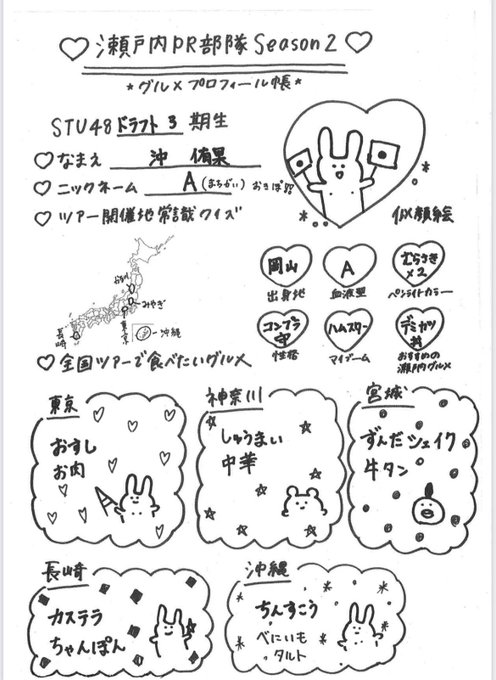 ♡ 瀬戸内PR部隊 Season2 ♡
*グルメプロフィール帳*
STU48 ドラフト3 期生
♡ なまえ 沖 侑果
♡ ニックネーム A(まちがい) おきぽ!?
♡ ツアー開催地常識クイズ
似顔絵
みやぎ
東京
長崎
沖縄
岡山
出身地
A
血液型
むらさき×2
ペンライトカラー
コンプラ守
性格
ハムスター
マイブーム
デミカツ丼
おすすめの瀬戸内グルメ
♡ 全国ツアーで食べたいグルメ
東京
おすし
お肉
神奈川
しゅうまい
中華
宮城
ずんだシェイク
牛タン
長崎
カステラ
ちゃんぽん
沖縄
ちんすこう
べにいも
タルト